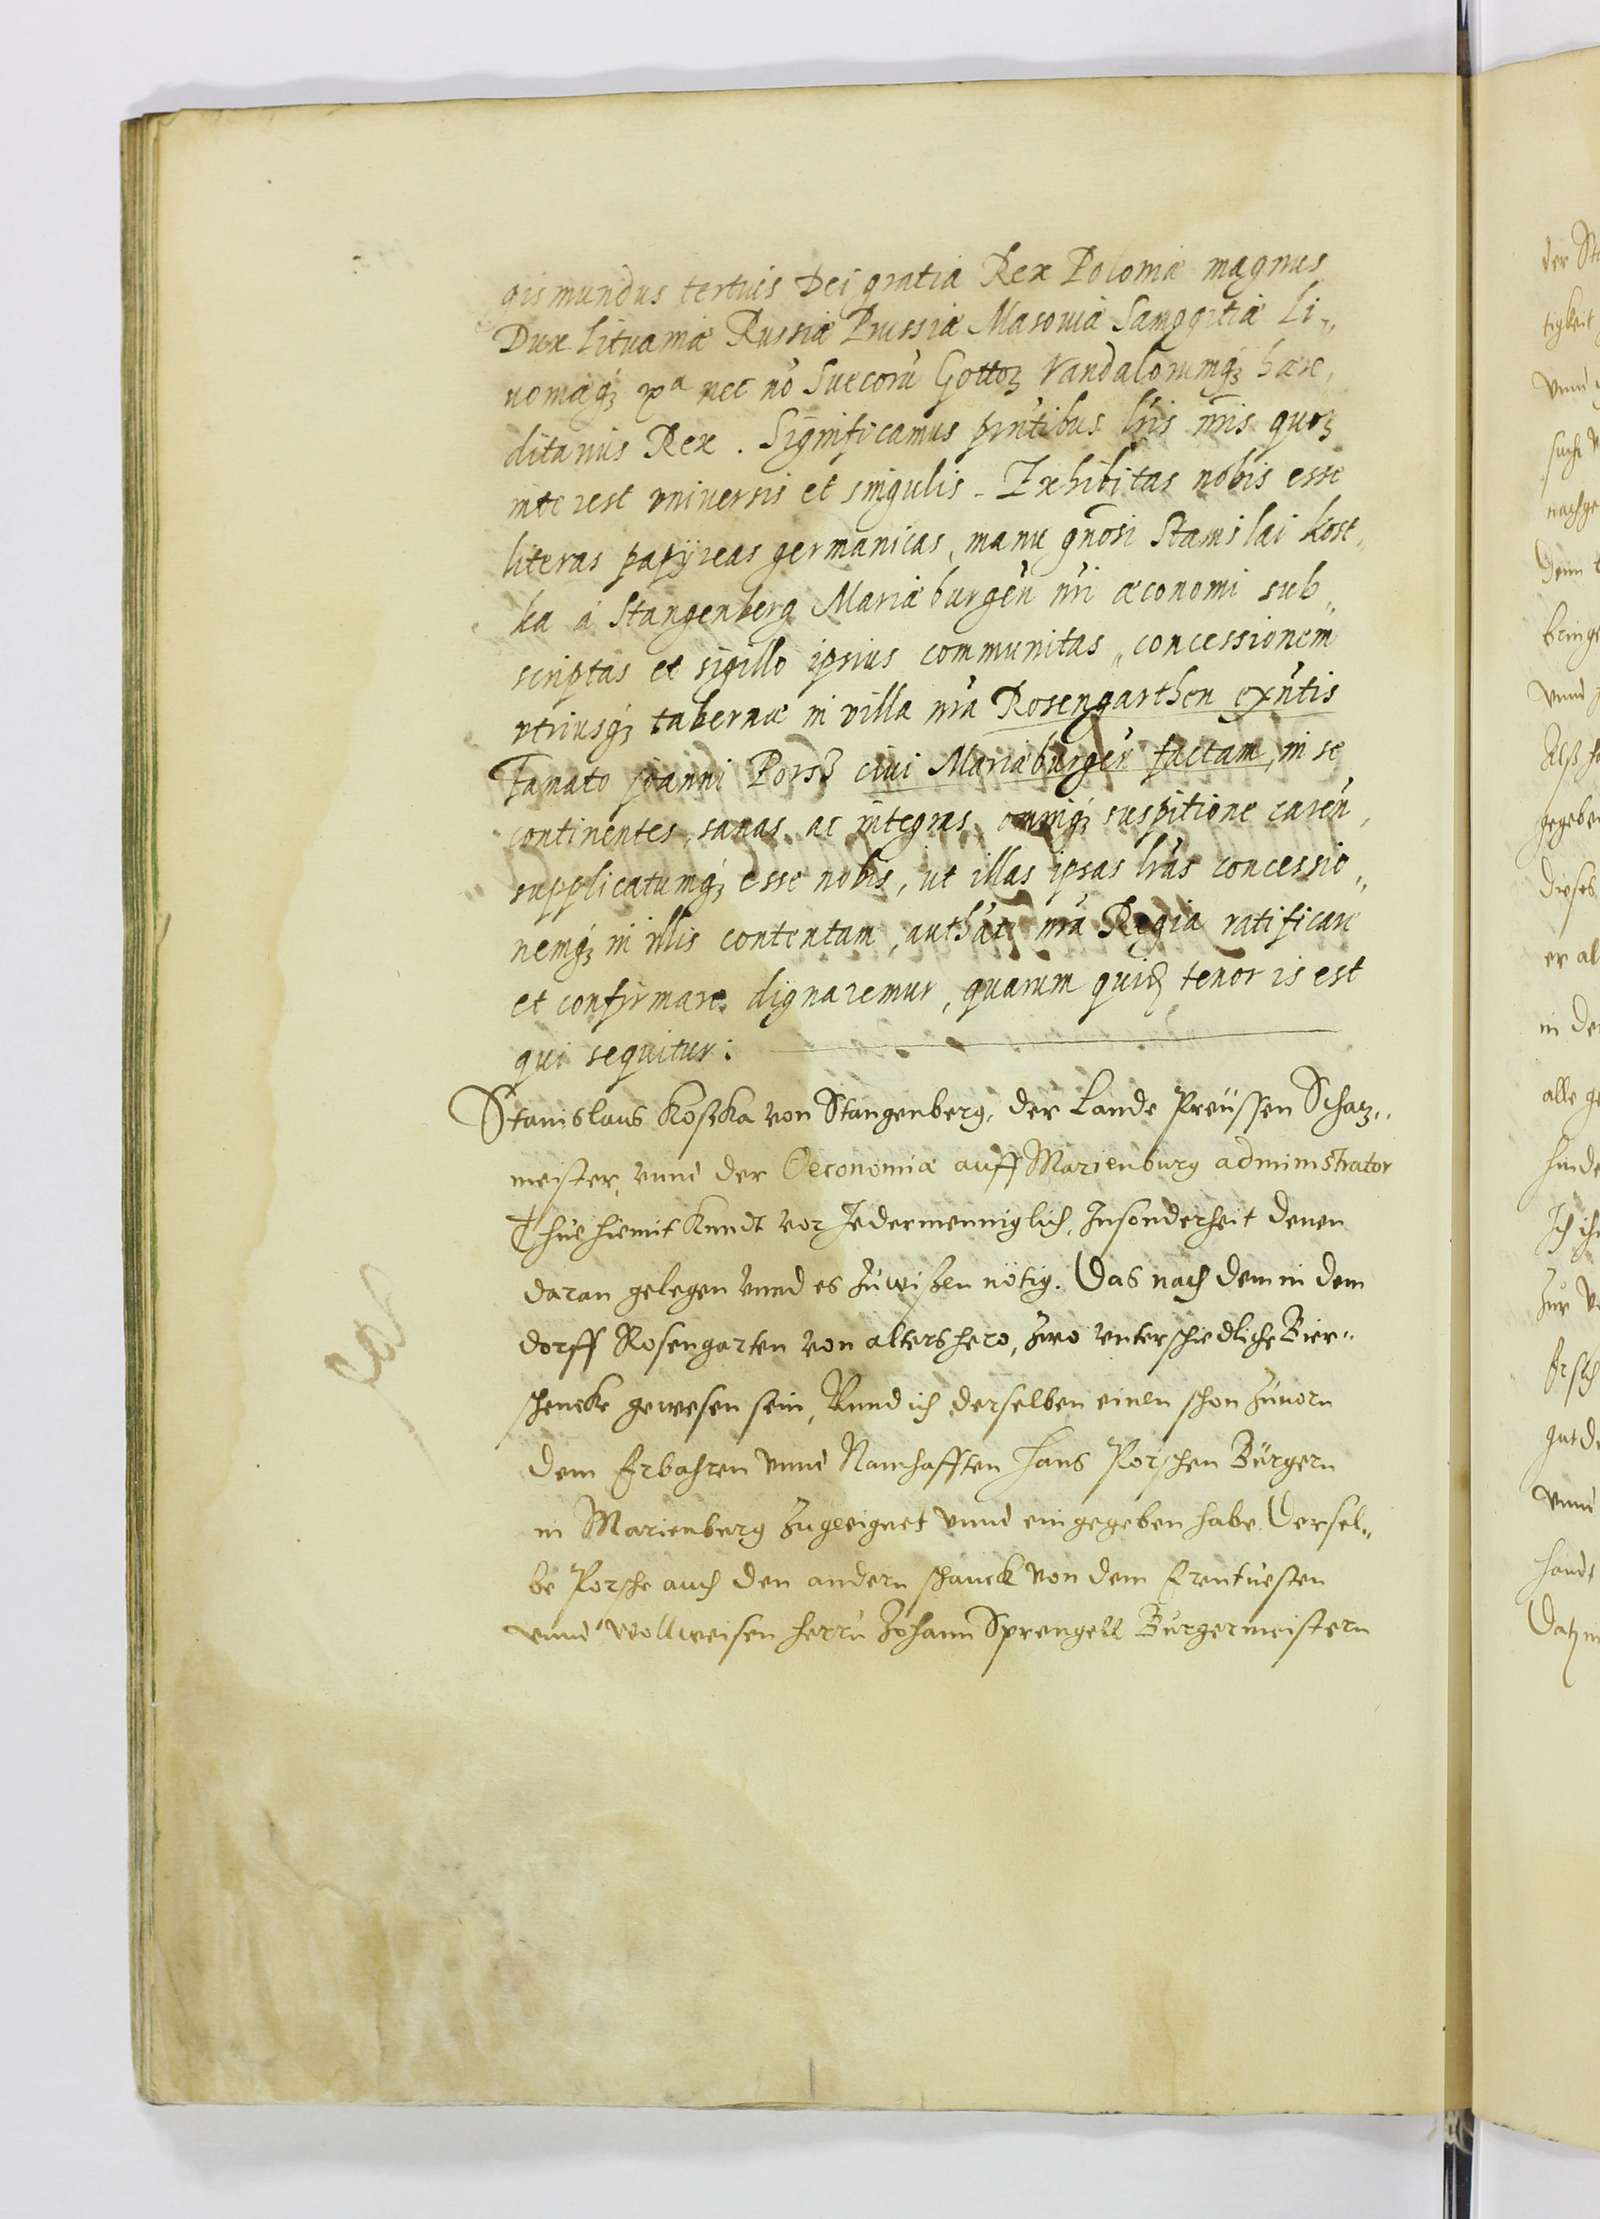 gismundus tertius Dei gratia Rex Poloniæ magnus
Dux Lituaniæ Russiæ Prussiæ Masouiæ Samogitiæ Li„
uoniæq́ꝫ nec nō Suecorū Gottoꝝ Vandalorumq́ꝫ hære,
ditarius Rex. Significamus pn̄tibus lr̄is nr̄is quoꝝ
interest vniuersis et singulis. Exhibitas nobis esse
literas papÿreas germanicas, manu gn̄osi Stanislai Kost„
ka à Stangenberg Mariæburgeñ nr̄i œconomi sub„
scriptas et sigillo ipsius communitas, concessionem
vtriusq́ꝫ tabernæ in villa nr̄a Rosengarthen exn̄tis
Famato Joanni Porsß ciui Mariæburgeñ factam, in se
continentes, sanas ac integras, omniq́ꝫ suspitione careñ,
supplicatumq́ꝫ esse nobis, ut illas ipsas lr̄as concessio„
nemq́ꝫ in illis contentam, authāte nr̄a Regia ratificare
et confirmare dignaremur, quarum quiꝺ tenor is est
qui sequitur:
Stanislaus Koßka von Stangenberg, der Lande Preüssen Schaz„
meister, vnnd der Oeconomiæ auff Marienburg administrator
Thue hiemit Kundt vor Jedermenniglich, Insonderheit denen
daran gelegen vnnd es zuwißen nötig. Das nach dem in dem
dorff Rosengarten von altershero, zwo vnterschiedliche Bier„
schencke gewesen sein, Vnnd ich derselben einen schon zuuorn
dem Erbahren vnnd Namhafften Hans Porschen Bürgern
in Marienburg zugeeignet vnnd eingegeben habe. Dersel„
be Porsche auch den andern schanck von dem Erentuesten
vnnd Wollweisen Herrn Johann Sprengell Burgermeistern